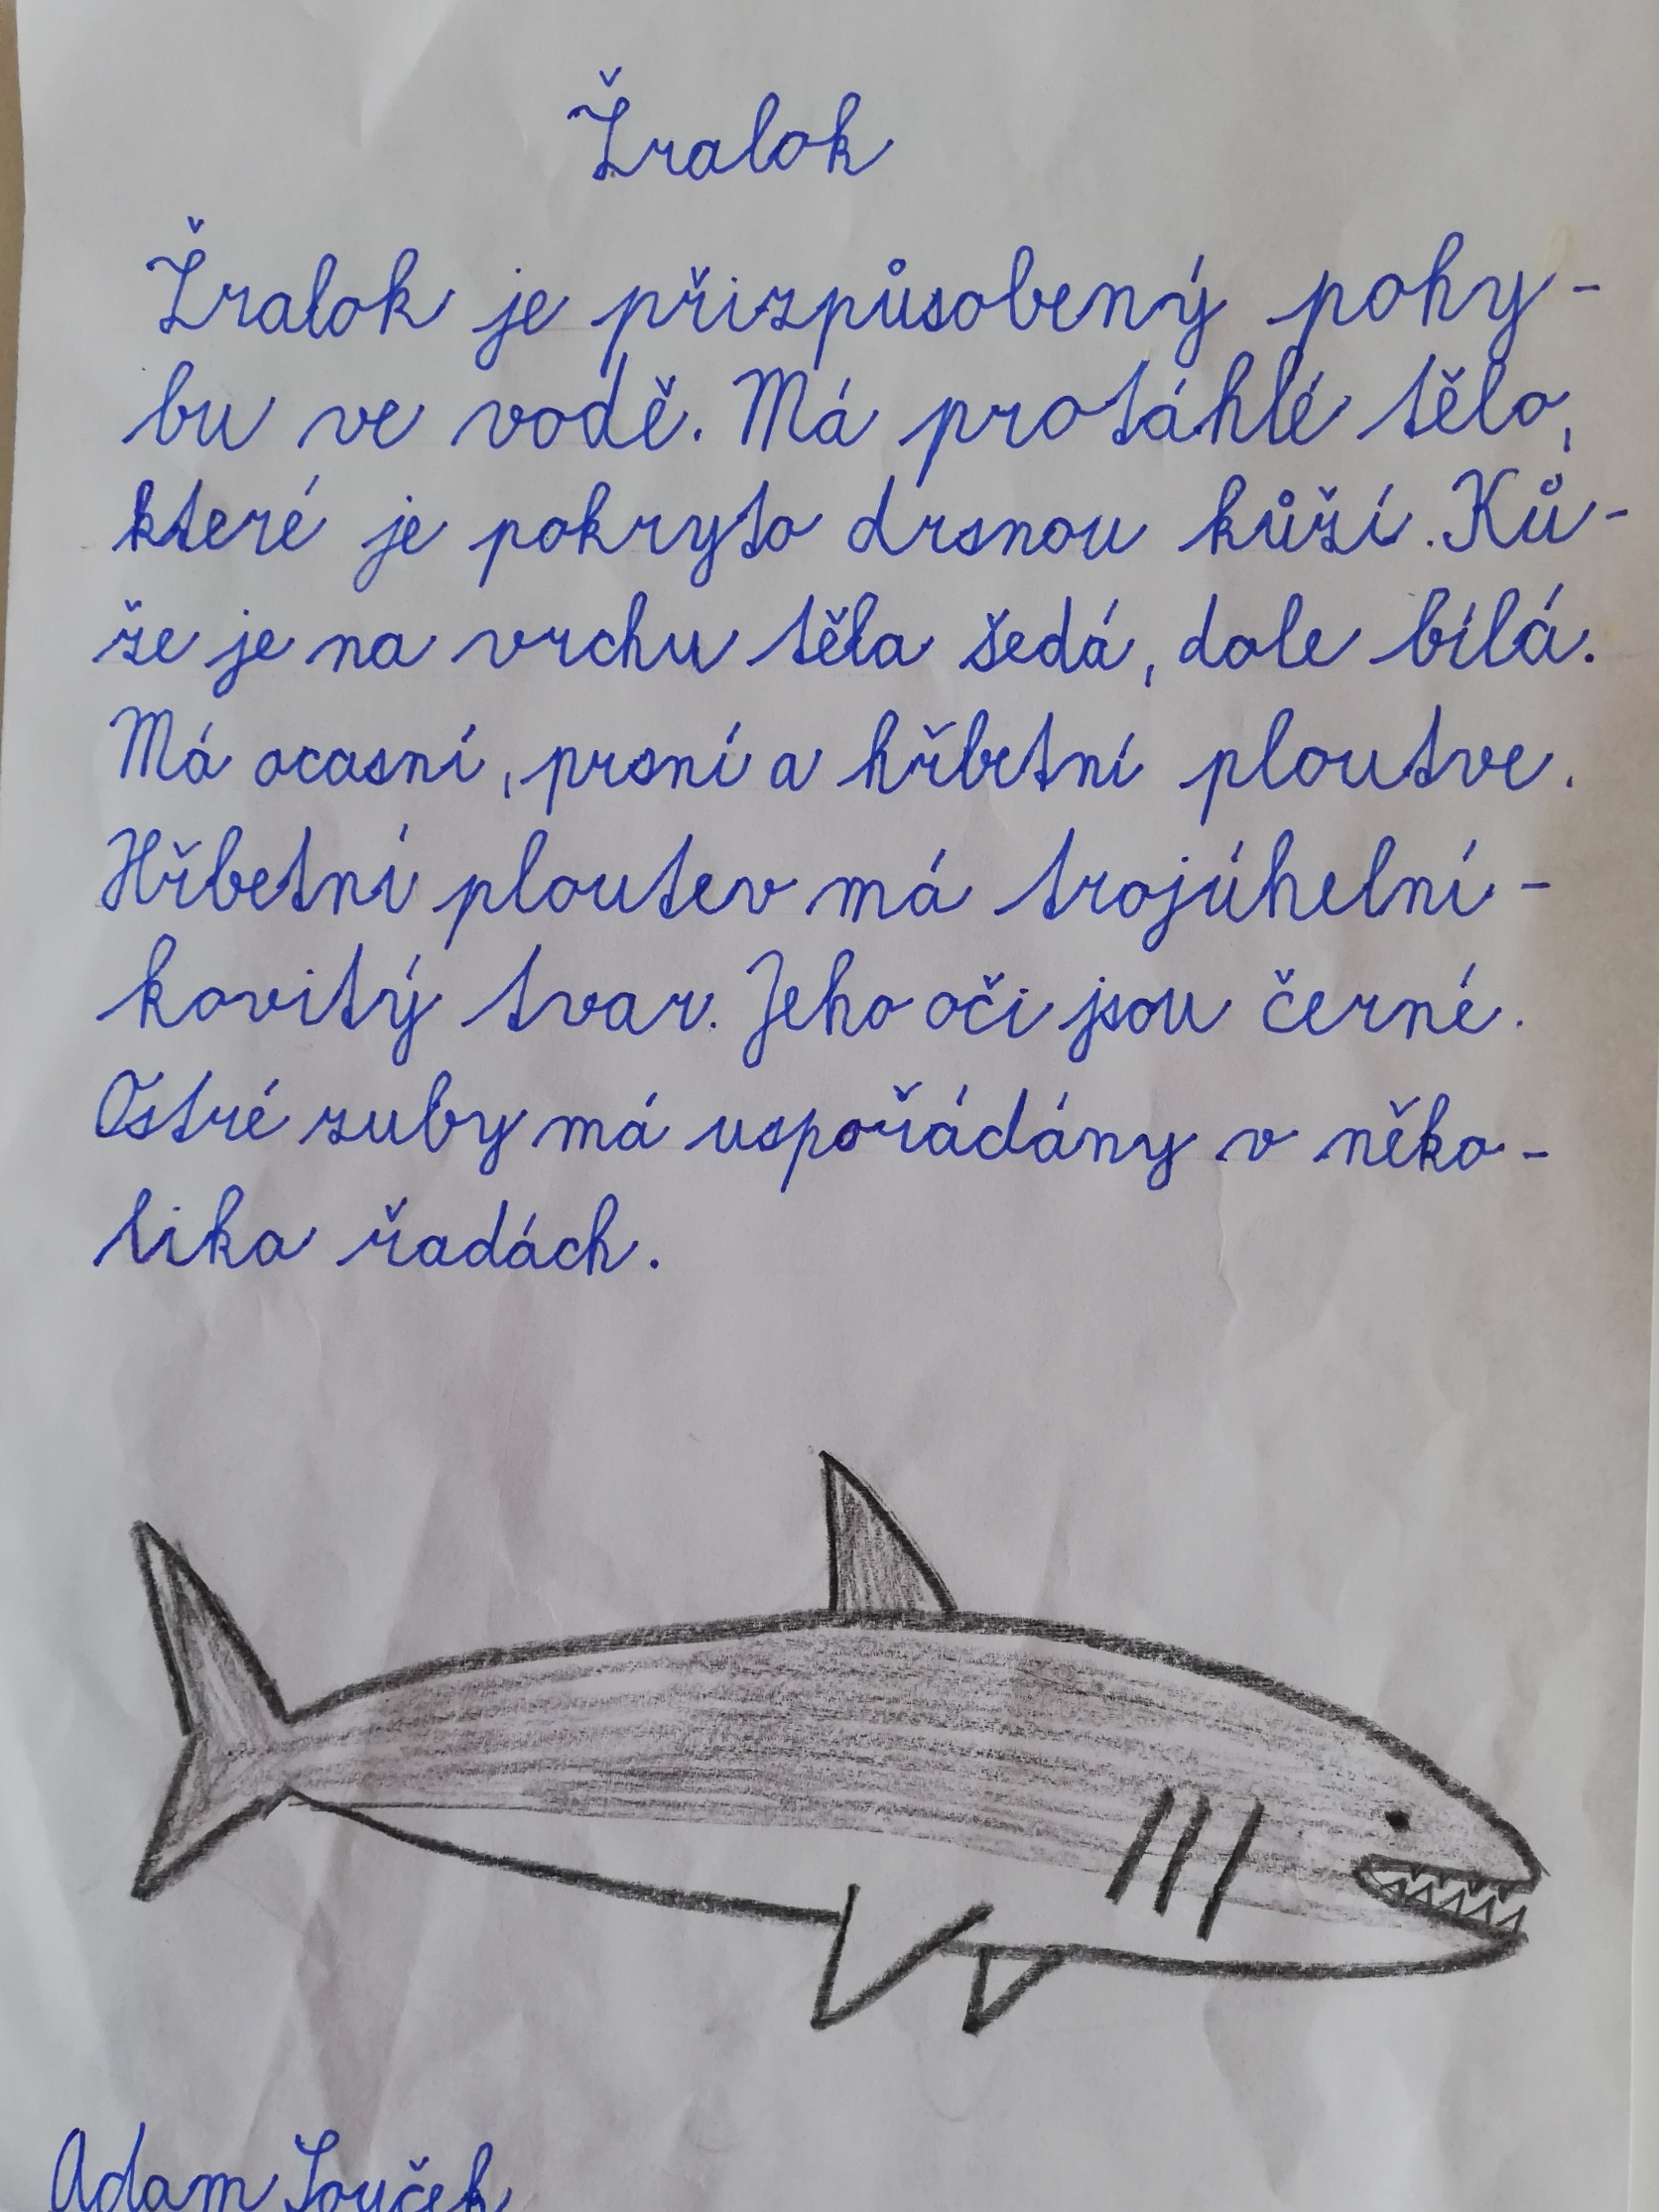 Žralok
Žralok je přizpůsobený pohy-
bu ve vodě. Má protáhlé tělo,
které je pokryto drsnou kůží. Ků-
že je na vrchu těla šedá, dole bílá.
Má ocasní, prsní a hřbetní ploutve.
Hřbetní ploutev má trojúhelní-
kovitý tvar. Jeho oči jsou černé.
Ostré zuby má uspořádány v něko-
lika řadách.
Adam Souček